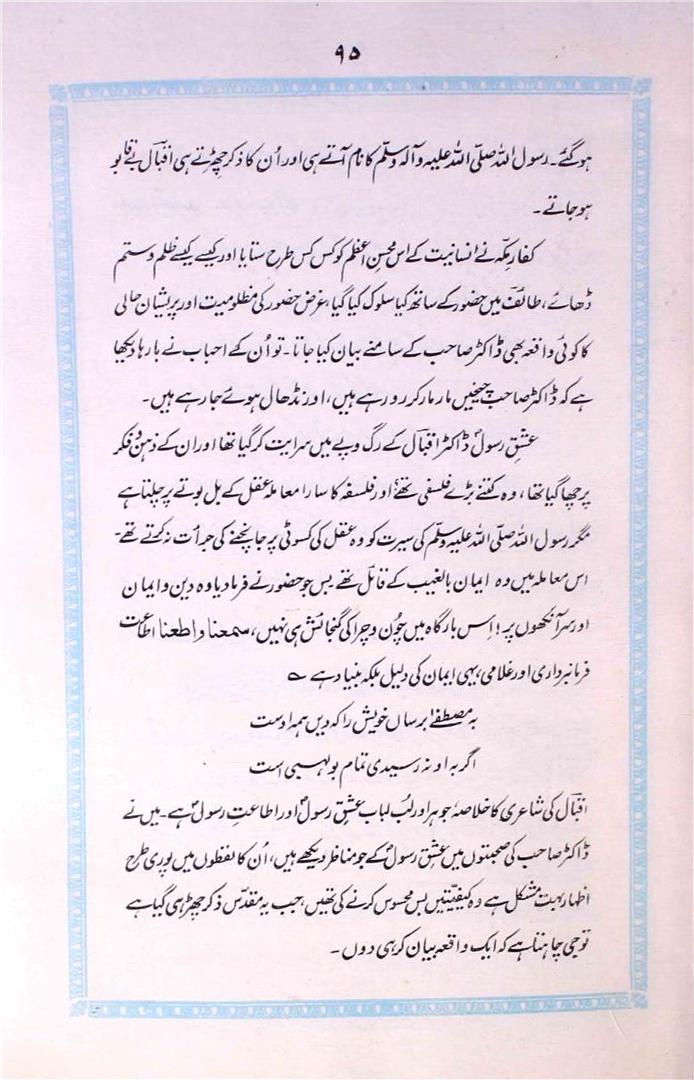 ۹۵
ہو گئے۔ رسول اللہ صلّی اللہ علیہ وآلہ وسلّم کا نام آتے ہی اور اُن کا ذکر چھڑتے ہی اقبال بے قابو
ہو جاتے۔
کفارِ مکّہ نے انسانیت کے اس محسنِ اعظم کو کس کس طرح ستایا اور کیسے کیسے ظلم و ستم
ڈھائے، طائف میں حضور کے ساتھ کیا سلوک کیا گیا، غرض حضور کی مظلومیت اور پریشان حالی
کا کوئی واقعہ بھی ڈاکٹر صاحب کے سامنے بیان کیا جاتا۔ تو اُن کے احباب نے بارہا دیکھا
ہے کہ ڈاکٹر صاحب چیخیں مار مار کر رو رہے ہیں، اور نڈھال ہوئے جا رہے ہیں۔
عشقِ رسولؐ ڈاکٹر اقبال کے رگ و پے میں سرایت کر گیا تھا اور ان کے ذہن و فکر
پر چھا گیا تھا، وہ کتنے بڑے فلسفی تھے؛ اور فلسفہ کا سارا معاملہ عقل کے بل بوتے پر چلتا ہے
مگر رسول اللہ صلّی اللہ علیہ وسلّم کی سیرت کو وہ عقل کی کسوٹی پر جانچنے کی جرأت نہ کرتے تھے۔
اس معاملہ میں وہ ایمان بالغیب کے قائل تھے بس جو حضور نے فرما دیا وہ دین و ایمان
اور سر آنکھوں پر! اِس بارگاہ میں چُون و چرا کی گنجائش ہی نہیں، سمعنا و اطعنا اطاعت
فرمانبرداری اور غلامی، یہی ایمان کی دلیل بلکہ بنیاد ہے ؎
بہ مصطفےٰ برساں خویش را کہ دیں ہمہ اوست
اگر بہ او نہ رسیدی تمام بولہبی است
اقبال کی شاعری کا خلاصہ جوہر اور لُبِّ لباب عشقِ رسولؐ اور اطاعتِ رسولؐ ہے۔ میں نے
ڈاکٹر صاحب کی صحبتوں میں عشقِ رسولؐ کے جو مناظر دیکھے ہیں، اُن کا لفظوں میں پوری طرح
اظہار بہت مشکل ہے وہ کیفیّتیں بس محسوس کرنے کی تھیں، جب یہ مقدّس ذکر چھڑ ہی گیا ہے
تو جی چاہتا ہے کہ ایک واقعہ بیان کر ہی دوں۔